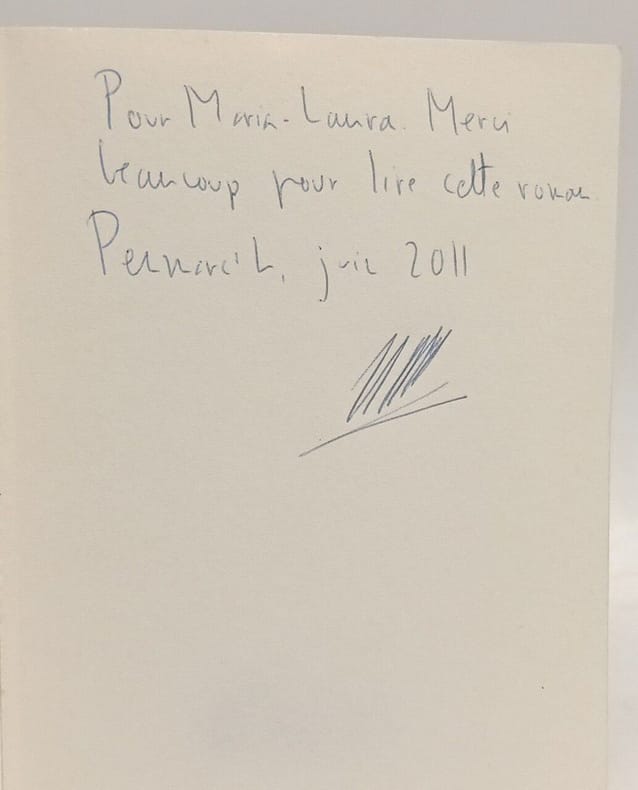 Pour Maria-Laura. Merci
beaucoup pour lire cette roman
juin 2011